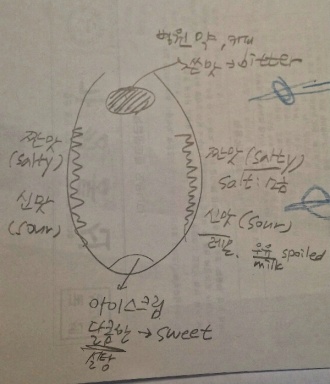 쓴맛 (bitter)
짠맛
(salty)
신맛
(sour)
짠맛 (salty)
salt : 소금
신맛 (sour)
레몬, 우유 spoiled
milk
아이스크림
단맛 → sweet
설탕